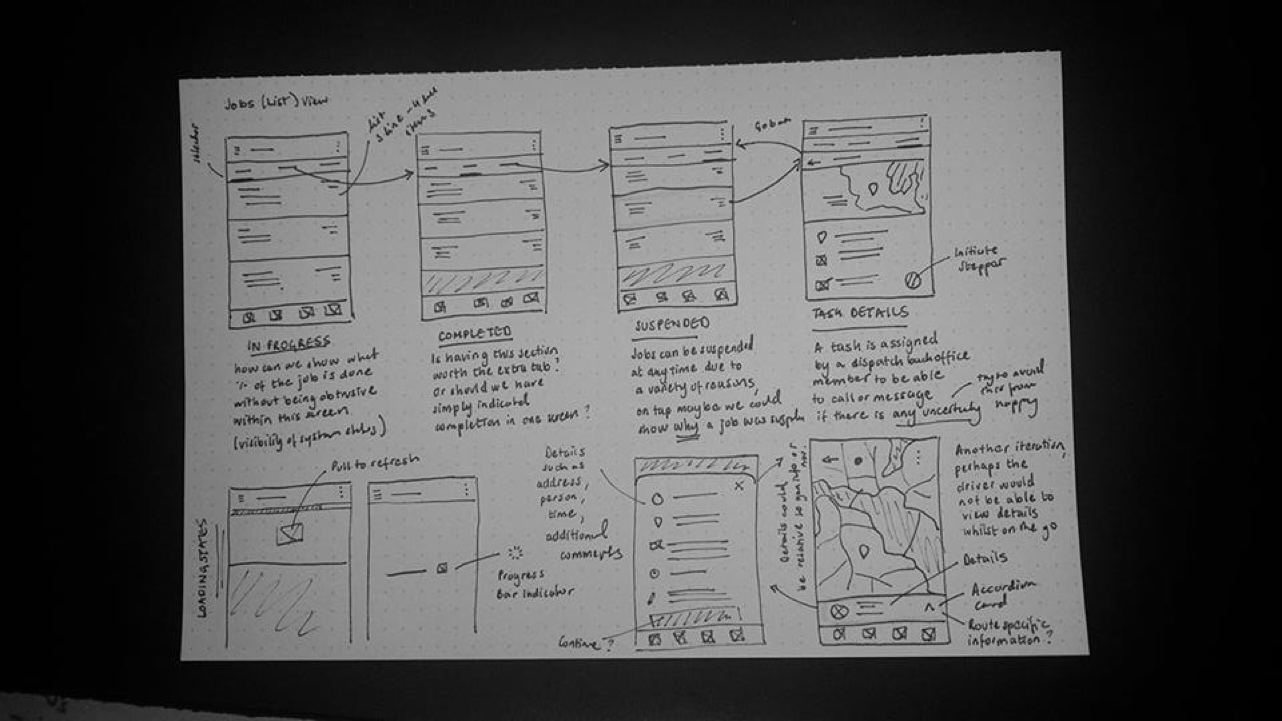 Jobs (List) View
List
3 line - 4
items
Go back
Initiate
Stepper
IN PROGRESS
how can we show what
% of the job is done
without being obtrusive
within this screen
(visibility of system status)
COMPLETED
Is having this section
worth the extra tab?
Or should we have
simply indicated
completion in one screen?
SUSPENDED
Jobs can be suspended
at any time due to
a variety of reasons,
on tap maybe we could
show why a job was
TASK DETAILS
A task is assigned
by a dispatch backoffice
member to be able
to call or message
if there is any uncertainty
try to avoid
this from
happening
LOADING STATES
Pull to refresh
Progress
Bar Indicator
Details
such as
address,
person,
time,
additional
comments
Continue?
Details could
be relative to
Another iteration,
perhaps the
driver would
not be able to
view details
whilst on the go
Details
Accordion
card
Route specific
information?